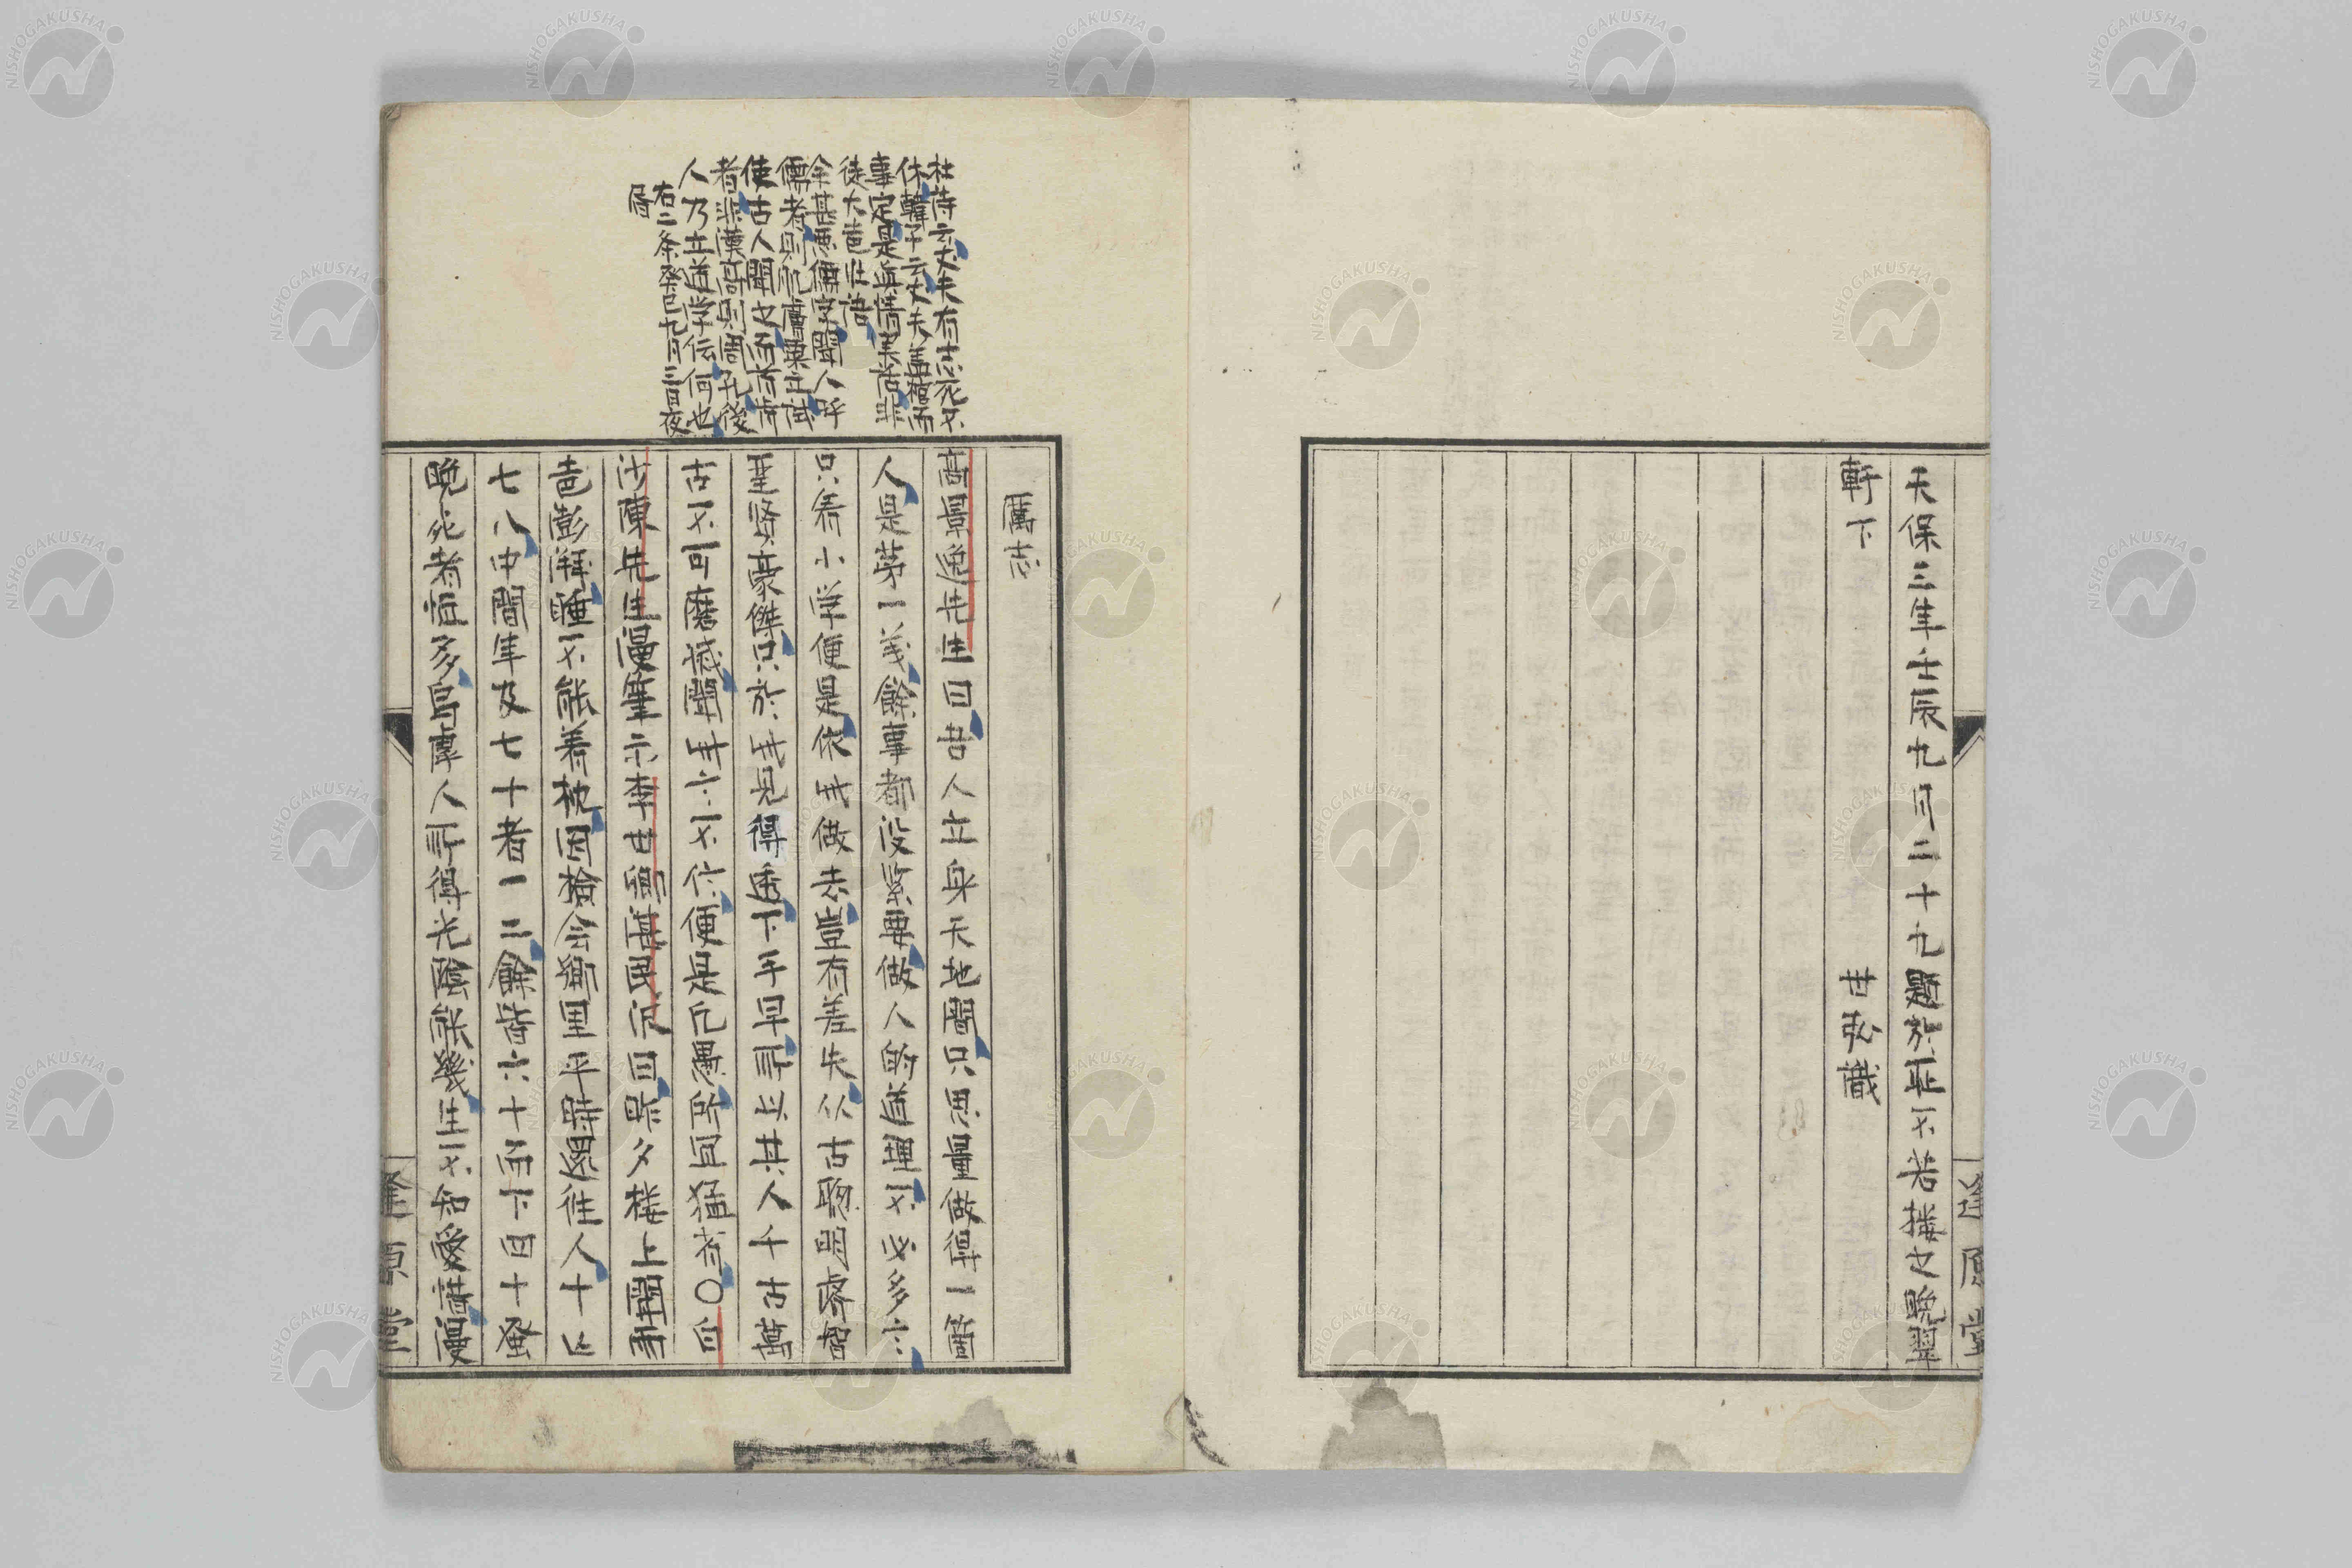 天保三年壬辰九月二十九題於亚不若搂之晩翠
軒下　世弘識
逢原堂
杜詩云丈夫有志死不
休韓子云丈夫盖棺而
事定是真情果活非
徒大壮語
余甚悪儒字聞人呼
儒者則肌膚粟立试
使古人聞之而肯
者非漢高則周孔後
人乃立道学伝何也
右二条癸巳九月三日夜
厲志
高景逸先生曰吾人立身天地間只思量做得一箇
人是苐一義餘事都没緊要做人的道理不必多言
只看小学便是依此做去豈有差失从古聡明睿智
聖賢豪傑只於此見得透下手早所以其人千古萬
古不可磨滅聞此言不信便是凡愚所宜猛省〇白
沙陳先生漫筆示李世卿湛民沢曰昨夕楼上聞雨
声澎湃睡不能着枕因檢会郷里平時還往人十亡
七八中間年及七十者一二餘皆六十而下四十蚤
晩死者恒多烏虖人所得光陰能幾生不知愛惜漫
逢原堂